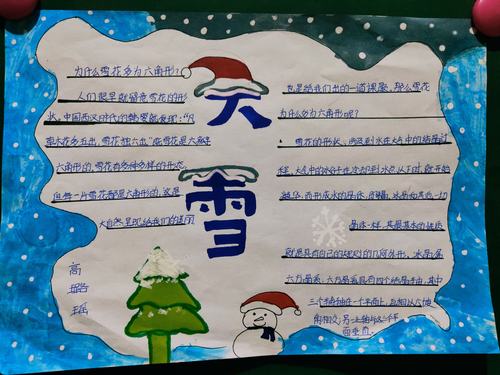 为什么雪花多为六角形？
人们很早就留意雪花的形
状，中国西汉时代的韩婴就发现："凡
草木花多五出，雪花独六出"虽雪花是大都呈
六角形的，雪花有多种多样的形态，
但每一片雪花都是六角形的，这是
大自然呈现给我们的
大
雪
也是给我们出的一道课题，那么雪花
为什么多为六角形呢？
雪花的形状，涉及到水在大气中的结晶过
程。大气中的水分子在冷却到冰点以下时，就开始
结华，而形成水的晶体，即冰晶，冰晶和其他一切
晶体一样，其最基本的性质
就是具有自己的规则的几何外形。冰晶属
六方晶系，六方晶系具有四个结晶轴，其中
三个辅轴在一个平面上，互相以六十度
角相交，另一主轴与这三个平
面垂直。
高
瑶